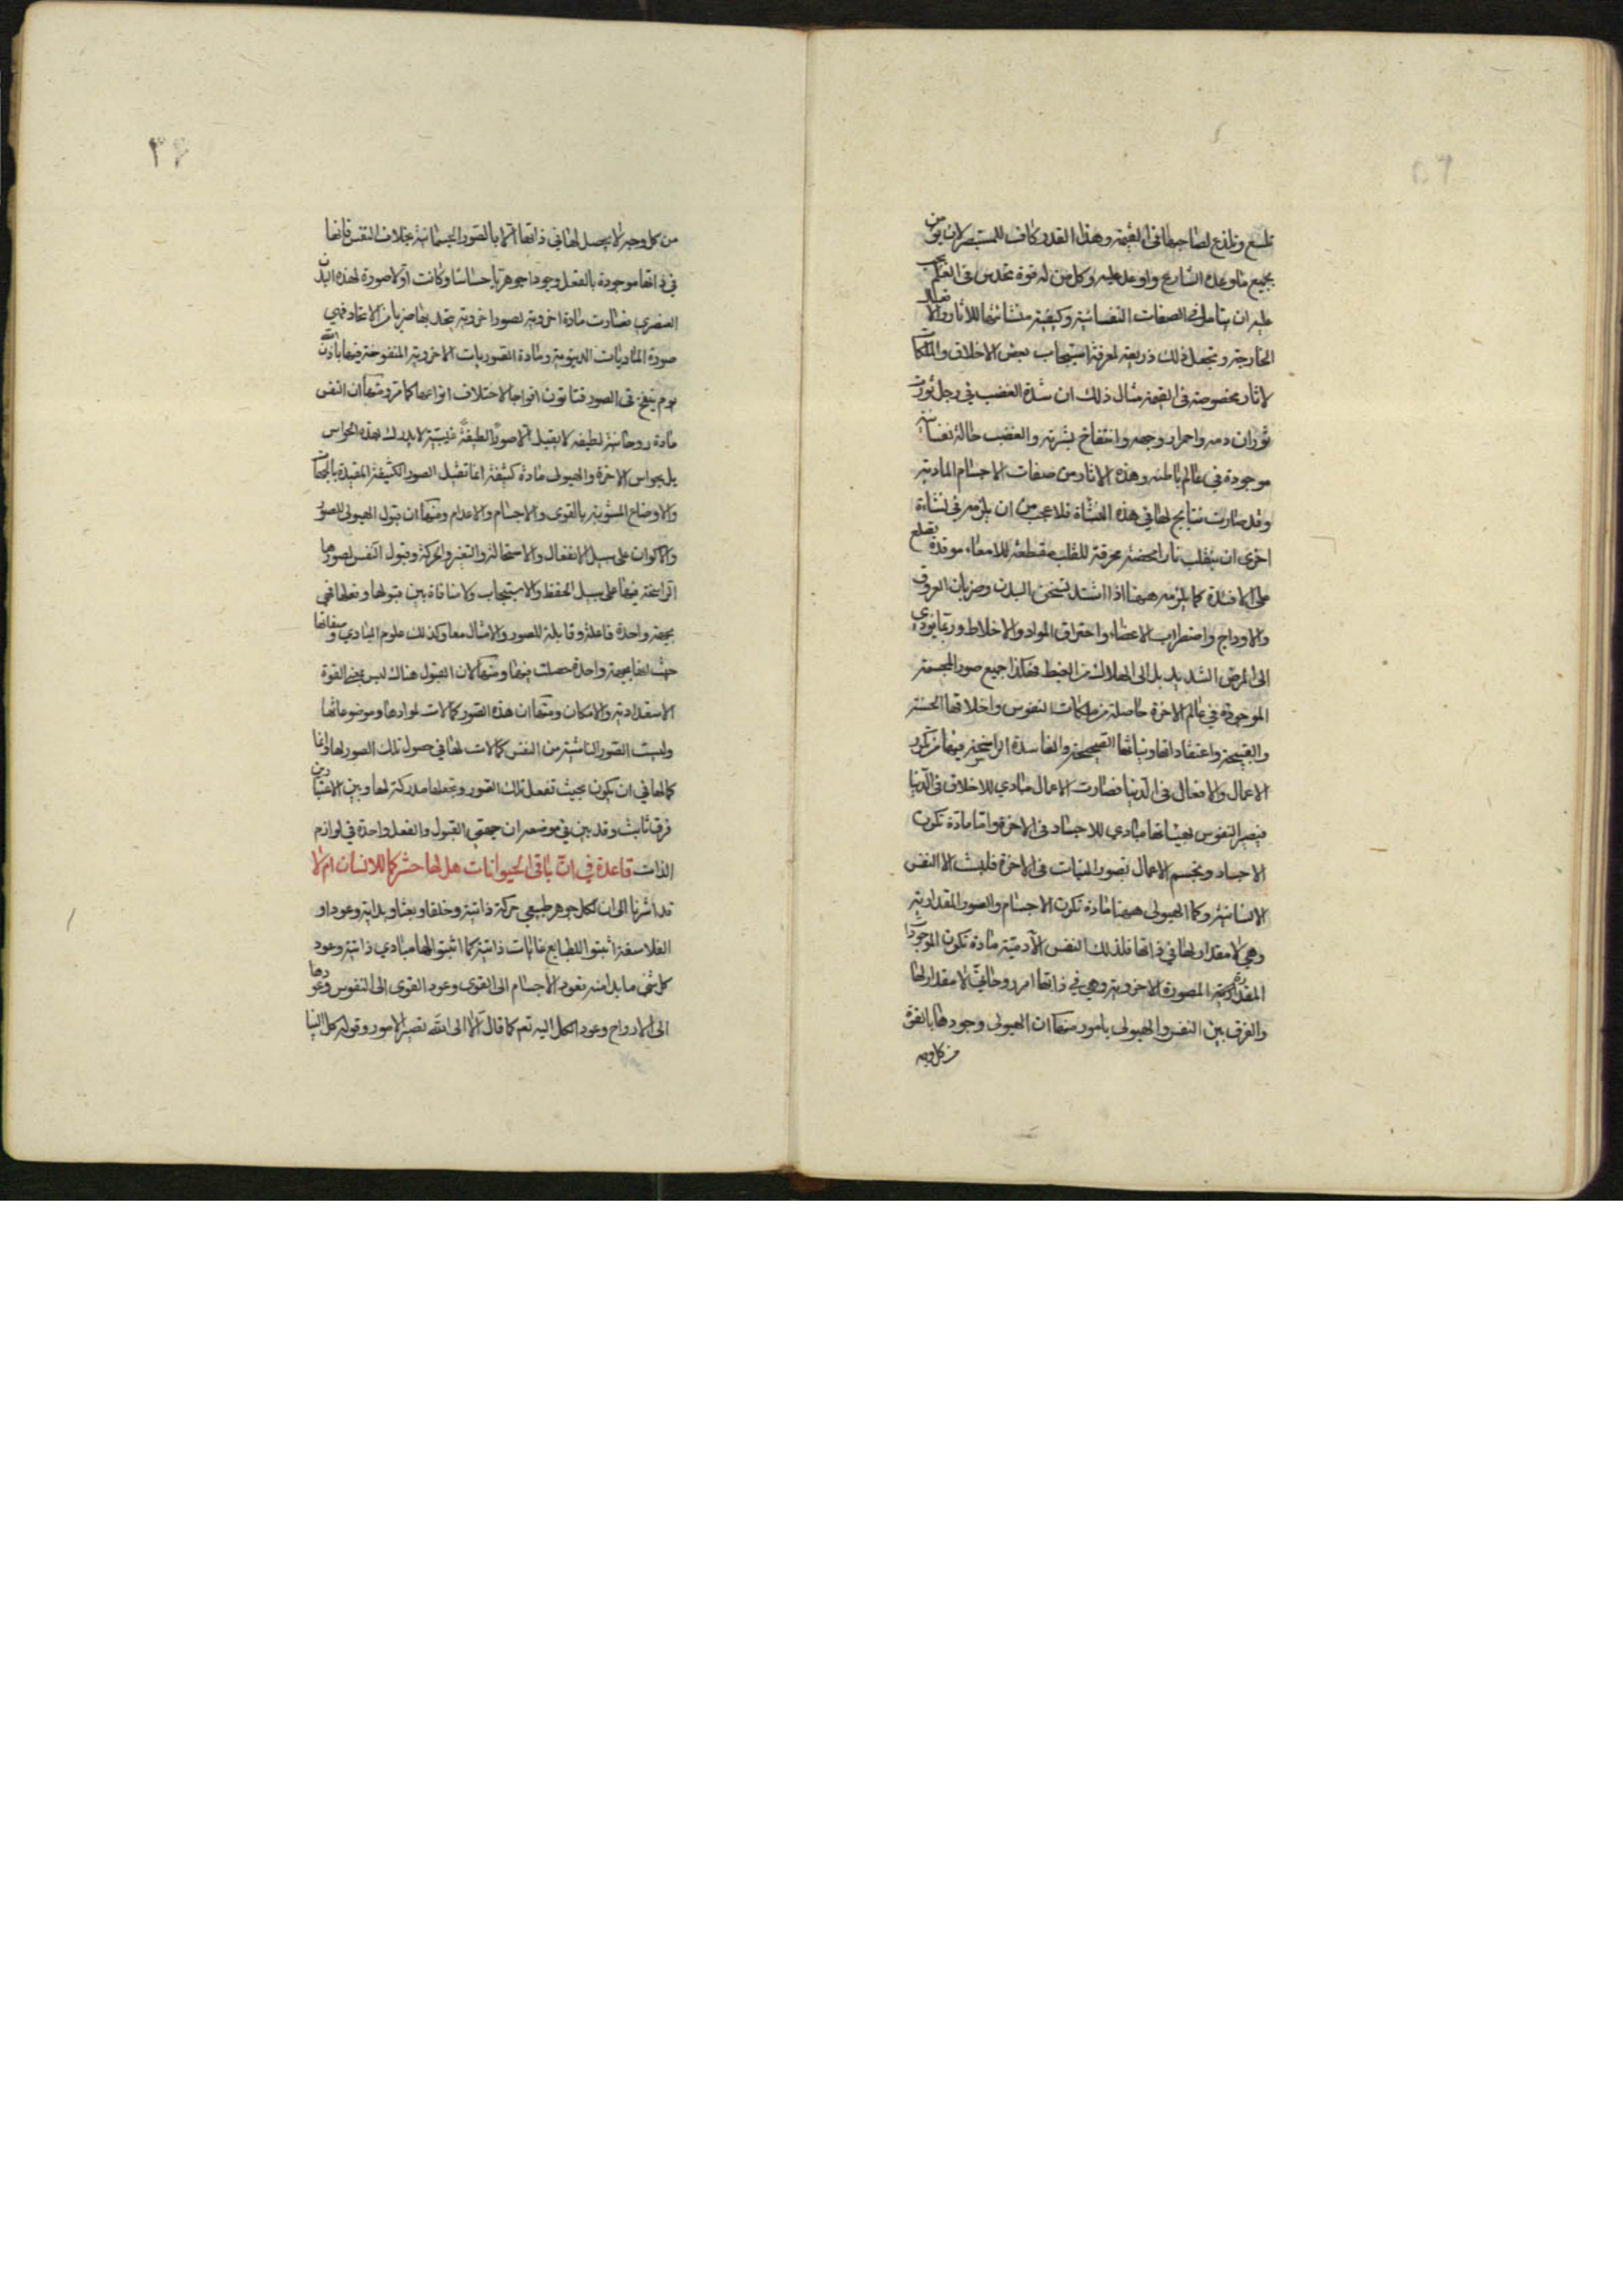 تلسع وتلذع لصاحبها فى القيمة وهذا القدر كاف للمستبصر لان يؤمن
بجميع ما وعده الشارع واوعد عليه وكل من له قوة تحدس فى العلم يجب
عليه ان يتامل فى الصفات النفسانية وكيفية منشائيتها للآثار والافعال
الخارجة ويجعل ذلك ذريعة لمعرفة استيجاب بعض الاخلاق والملكات
لاثار مخصوصة فى القيمة مثال ذلك ان شدة الغضب في رجل توجب
ثوران دمه واحمرار وجهه وانتفاخ بشرته والغضب حالة نفسانية
موجودة في عالم باطنه وهذه الاثار من صفات الاجسام المادية
وقد صارت نتايج لها في هذه النشاة فلا عجب من ان يلزمه فى نشاءة
اخرى ان ينقلب نارا محضة محرقة للقلب مقطعة للامعاء موقدة تطلع
على الافئدة كما يلزمه ههنا اذا اشتد تسخن البدن وضربان العروق
والاوداج واضطراب الاعضاء واحتراق المواد والاخلاط وربما يودى
الى المرض الشديد بل الى الهلاك من الغيظ فهكذا جميع صور المجسمة
الموجودة في عالم الاخرة حاصلة من ملكات النفوس واخلاقها الحسنة
والقبيحة واعتقاداتها ونياتها الصحيحة والفاسدة الراسخة فيها من تكرر
الاعمال والافعال فى الدنيا فصارت الاعمال مبادي للاخلاق فى الدنيا
فيصير النفوس بهيئاتها مبادي للاجساد فى الاخرة واما مادة تكون
الاجساد وتجسم الاعمال تصور النيات فى الاخرة فليست الا النفس
الانسانية وكما الهيولى ههنا مادة تكون الاجسام والصور المقدارية
وهي لا مقدار لها في ذاتها فلذلك النفس الآدمية مادة تكون الموجودات
المقدارية المصورة الاخروية وهي في ذاتها امر روحاني لا مقدار لها
والفرق بين النفس والهيولى بامور منها ان الهيولى وجودها بالقوة
من كل وجه
٣۶
من كل وجه لا يحصل لها في ذاتها الا بالصور الجسمانية بخلاف النفس فانها
في ذاتها موجودة بالفعل وجودا جوهريا حساسا وكانت اولا صورة لهذه البدن
العنصري فصارت مادة اخروية لصور اخروية يتحد بها ضربا من الاتحاد فهي
صورة الماديات الدنيوية ومادة الصوريات الاخروية المنفوخة فيها باذن الله
يوم ينفخ فى الصور فتاتون افواجا لاختلاف انواعها كما مر ومنها ان النفس
مادة روحانية لطيفه لا يقبل الا صورًا لطيفة غيبية لا يدرك بهذه الحواس
بل بحواس الاخرة والهيولى مادة كثيفة انما تقبل الصور الكثيفة المقيدة بالجهات
والاوضاع المشوبة بالقوى والاجسام والاعدام ومنها ان قبول الهيولى للصور
والاكوان على سبيل الانفعال والاستحالة والتغير والحركة وقبول النفس لصورها
الراسخة فيها على سبيل الحفظ والاستيجاب ولا منافاة بين قبولها وفعلها فهي
بجهة واحدة فاعلة وقابلة للصور والامثال معا وكذلك علوم المبادي وصفاتها
حيث انها بجهة واحدة حصلت فيها ومنها لان القبول هناك ليس بمعنى القوة
الاستعدادية والامكان ومنها ان هذه الصور كمالات لموادها وموضوعاتها
وليست الصور الناشية من النفس كمالات لها في حصول تلك الصور لها وانما
كمالها في ان يكون بحيث تفعل تلك الصور وتجعلها مدركة لها وبين الاعتبارين
فرق ثابت وقد بين في موضعه ان جهتي القبول والفعل واحدة في لوازم
الذات قاعدة في ان باقي الحيوانات هل لها حشر كما للانسان ام لا
قد اشرنا الى ان لكل جوهر طبيعي حركة ذاتية وخلقا وبعثا وبداية وعودا و
الفلاسفة اثبتوا للطبايع غايات ذاتية كما اثبتوا لها مبادي ذاتية وعود
كل شي ما بدا منه فعود الاجسام الى القوى وعود القوى الى النفوس وعودها
الى الارواح وعود الكل اليه تعم كما قال الا الى الله تصير الامور وقوله كل الينا